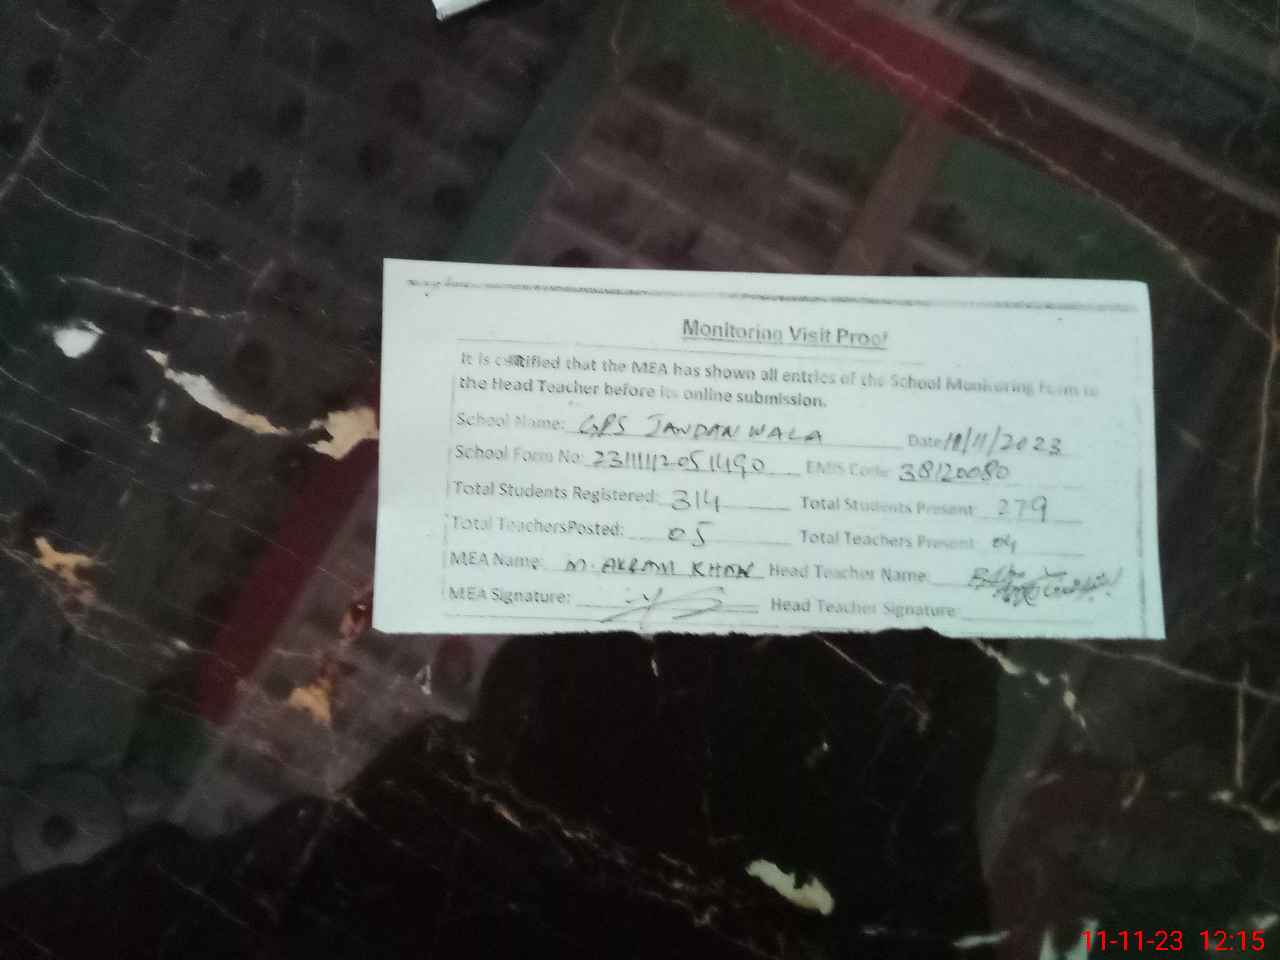 Monitoring Visit Proof
It is certified that the MEA has shown all entries of the School Monitoring Form to
the Head Teacher before its online submission.
School Name: GPS JANDANWALA Date 11/11/2023
School Form No: 2311112051490 EMIS Code: 38120080
Total Students Registered: 314 Total Students Present: 279
Total TeachersPosted: 05 Total Teachers Present: 04
MEA Name: M. AKRAM KHAN Head Teacher Name:
MEA Signature: Head Teacher Signature
11-11-23 12:15